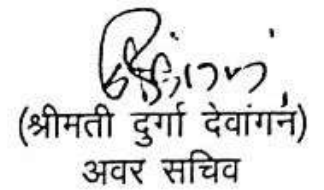 (श्रीमती दुर्गा देवांगन)
अवर सचिव